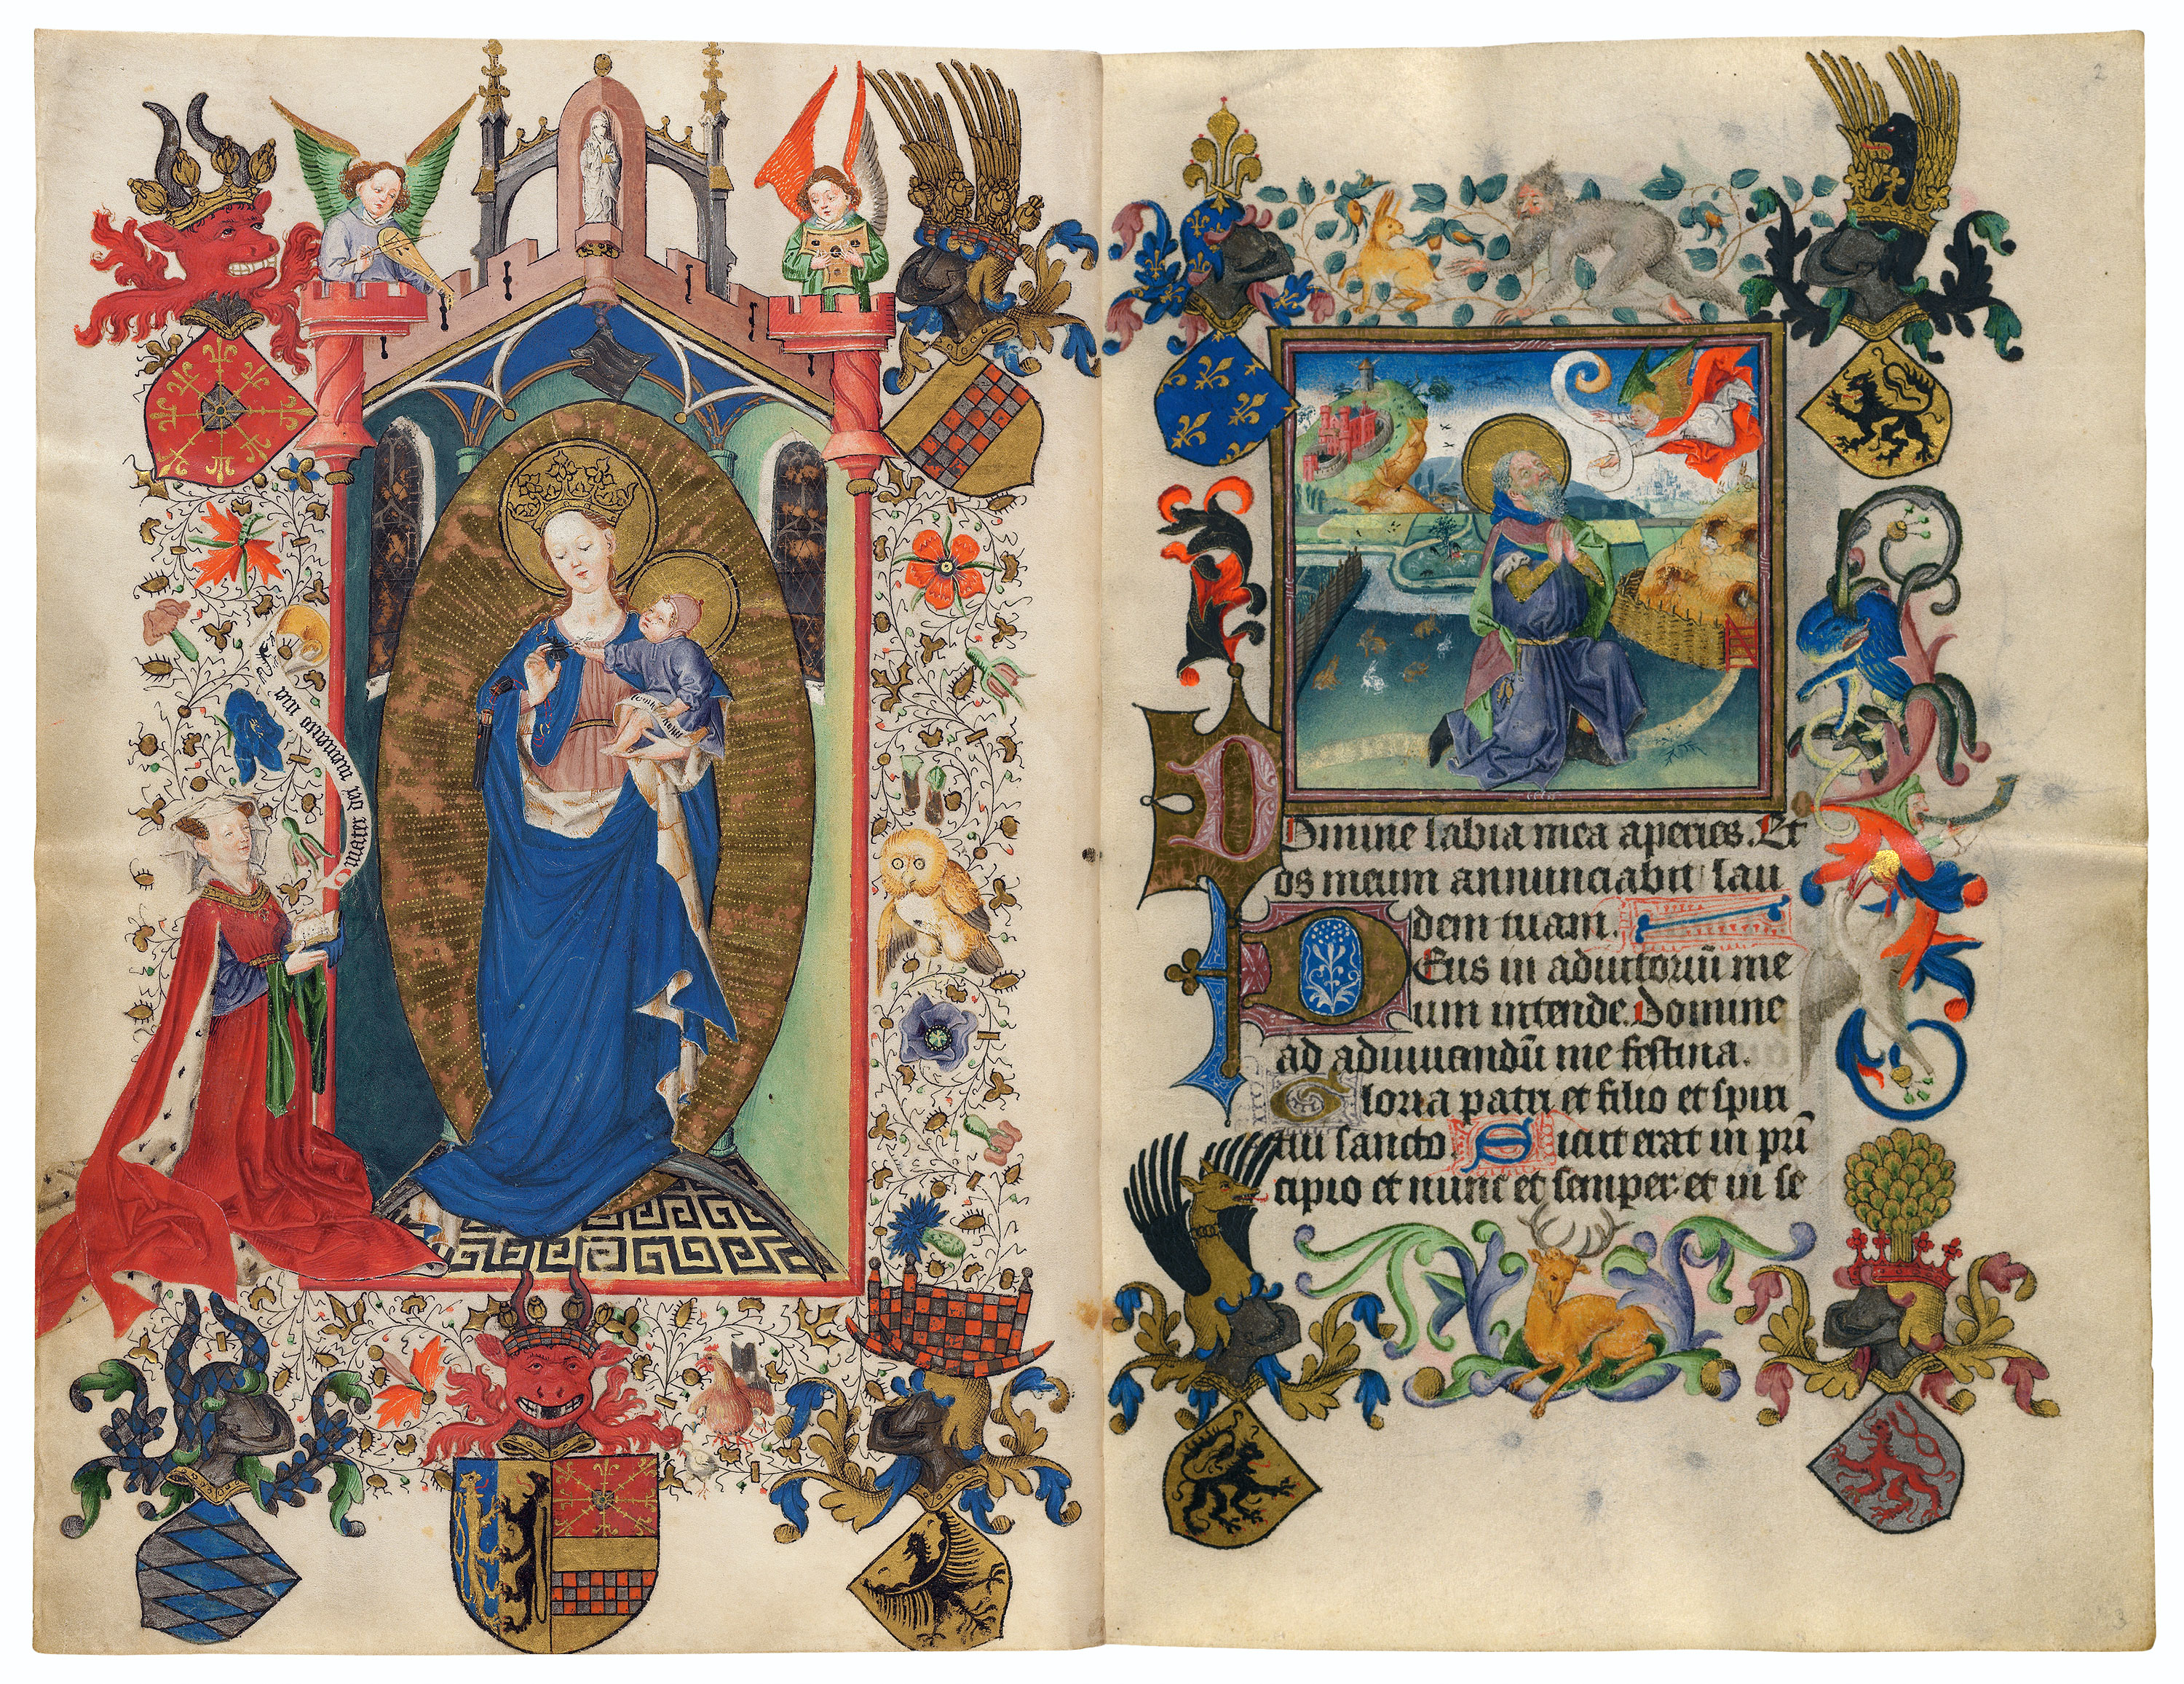 O mater dei memento mei
2
DOmine labia mea aperies. Et
os meum annunciabit lau
dem tuam.
DEus in adiutoriū me
um intende. Domine
ad adiuuandū me festina.
Gloria patri et filio et spiri
tui sancto. Sicut erat in prī
cipio et nunc et semper: et in se
3